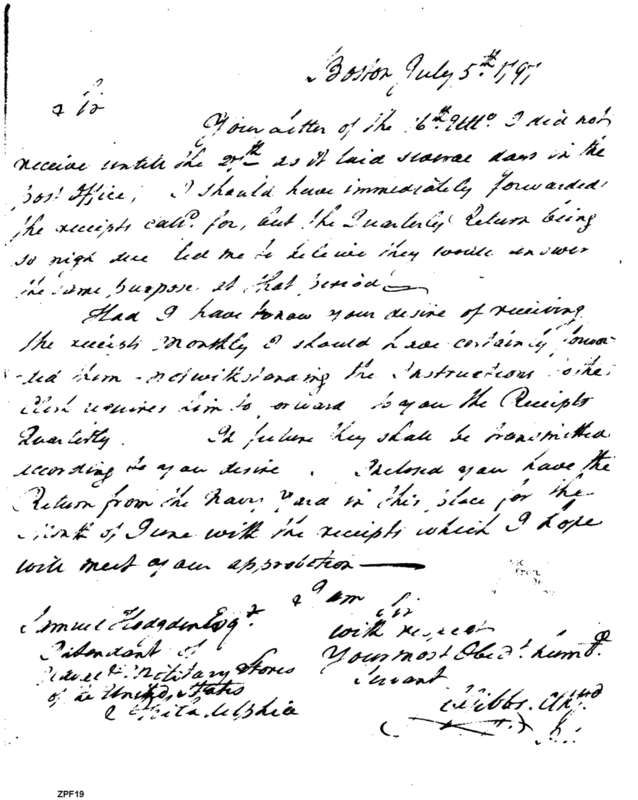 Boston July 5th 1797
Sir
Your Letter of the 16th Ulto. I did not
receive until the 27th as it laid several days in the
post office; I should have immediately forwarded
the receipts calld. for, but the Quarterly Return being
so nigh due led me to believe they would answer
the same purpose at that period
Had I have know your desire of receiving
the receipts Monthly I should have certainly forwar
-ded them notwithstanding the Instructions to the
Clerk requires him to forward to you the Receipts
Quarterly. In future they shall be transmitted
according to your desire. Inclosed you have the
Return from the Navy Yard in this place for the
Month of June with the receipts which I hope
will meet your approbation
I am Sir
with respect
Your most Obedt. humble
Servant
Gibbs
Samuel Hodgdon Esqr.
Intendant of
Military Stores
of the United States
Philadelphia
ZPF19